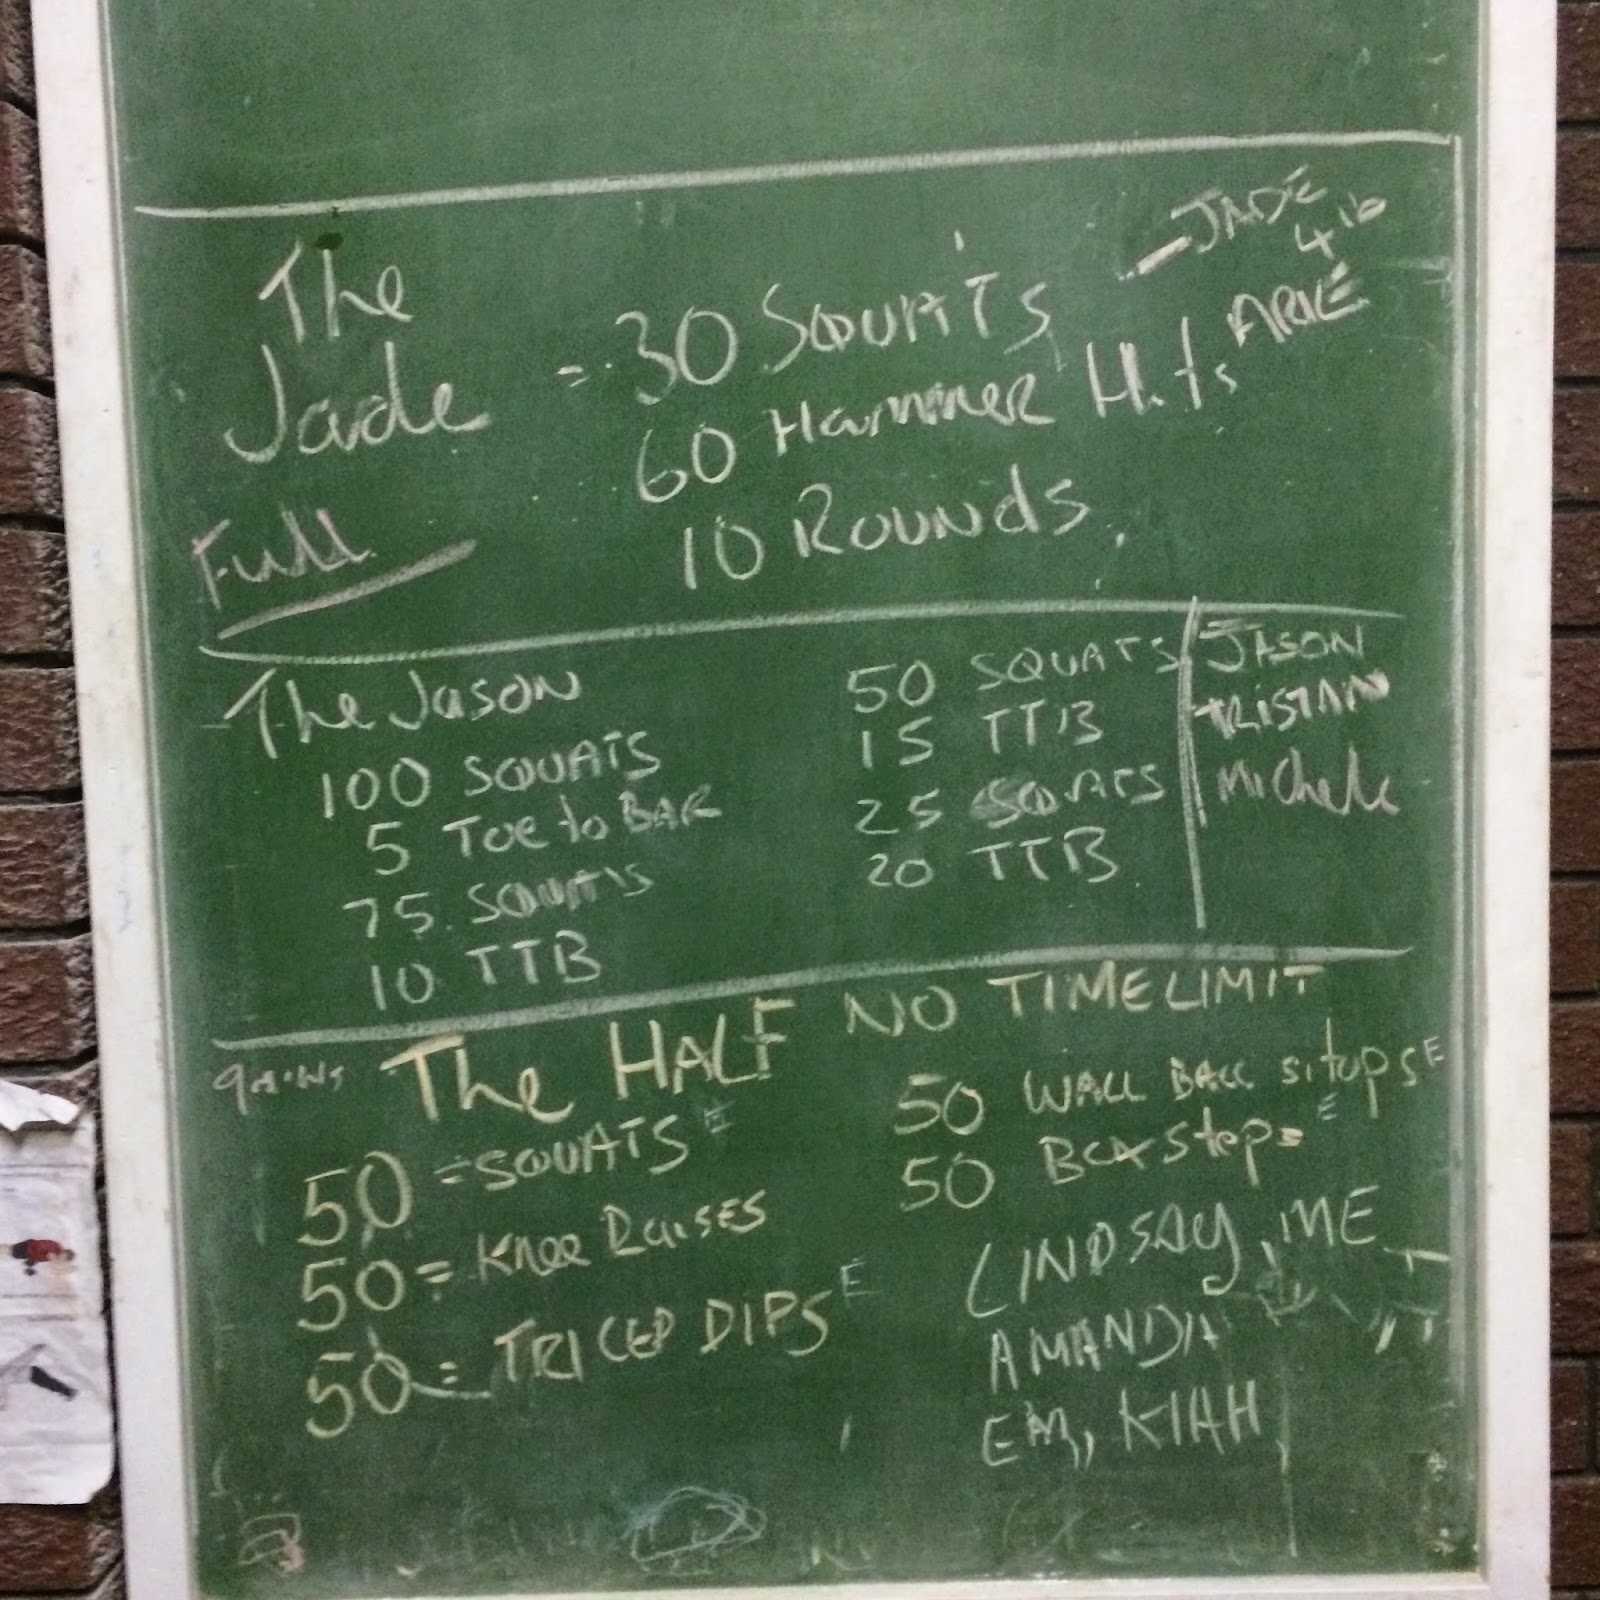 The
Jade = 30 SQUATS - JADE
60 Hammer Hits
10 ROUNDS
Full
The Jason
100 SQUATS
5 Toe to BAR
75 SQUATS
10 TTB
50 SQUATS
15 TTB
25 SQUATS
20 TTB
JASON
TRISTAN
Michele
The HALF NO TIME LIMIT
50 = SQUATS E
50 = Knee Raises
50 = TRICEP DIPS E
50 WALL BALL situps E
50 Box steps E
LINDSAY, ME
AMANDA
EM, KIAH